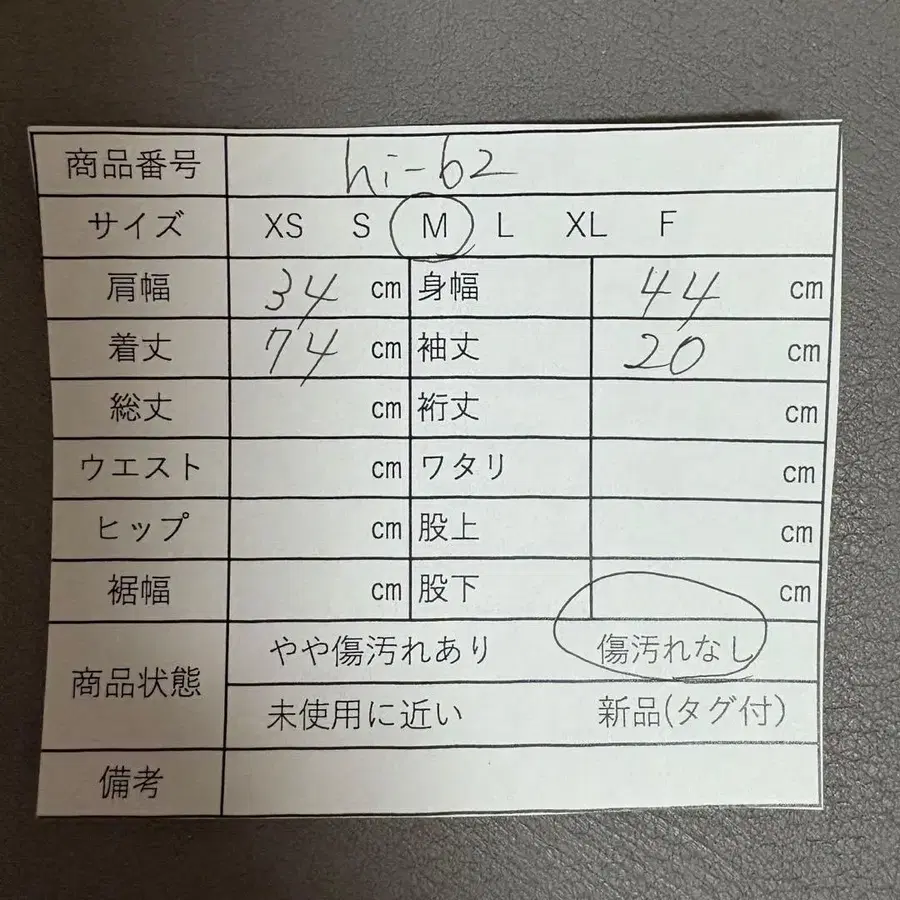 商品番号 hi-62
サイズ XS S M L XL F
肩幅 34 cm 身幅 44 cm
着丈 74 cm 袖丈 20 cm
総丈 cm 裄丈 cm
ウエスト cm ワタリ cm
ヒップ cm 股上 cm
裾幅 cm 股下 cm
商品状態 やや傷汚れあり 傷汚れなし
未使用に近い 新品(タグ付)
備考